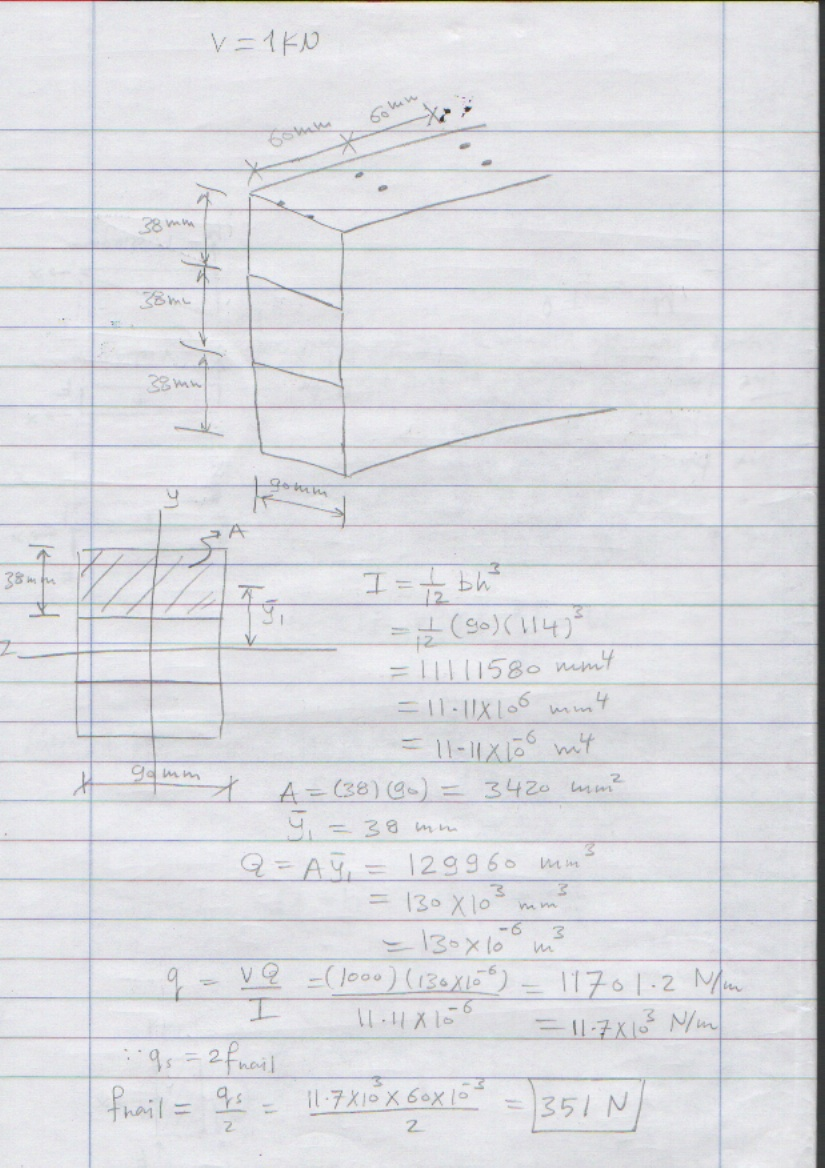 V = 1KN
60mm
60mm
38mm
38m
38mm
90mm
y
A
38mm
ȳ₁
Z
90mm
I = 1/12 bh³
= 1/12 (90)(114)³
= 11111580 mm⁴
= 11.11X10⁶ mm⁴
= 11.11X10⁻⁶ m⁴
A = (38)(90) = 3420 mm²
ȳ₁ = 38 mm
Q = Aȳ₁ = 129960 mm³
= 130X10³ mm³
= 130X10⁻⁶ m³
q = VQ/I = (1000)(130X10⁻⁶)/11.11X10⁻⁶ = 11701.2 N/m
= 11.7X10³ N/m
∵ qs = 2fnail
fnail = qs/2 = 11.7X10³X60X10⁻³/2 = 351 N